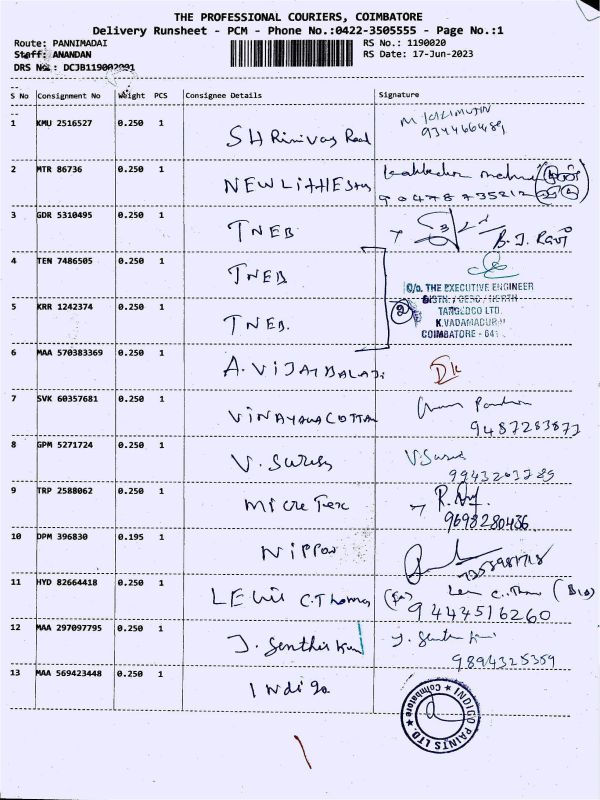 THE PROFESSIONAL COURIERS, COIMBATORE
Delivery Runsheet - PCM - Phone No.:0422-3505555 - Page No.:1
Route: PANNIMADAI RS No.: 1190020
Staff: ANANDAN RS Date: 17-Jun-2023
DRS No.: DCJB119002091
S No Consignment No Weight PCS Consignee Details Signature
1 KMU 2516527 0.250 1
2 MTR 86736 0.250 1
3 GDR 5310495 0.250 1 TNEB B.J. Ravi
4 TEN 7486505 0.250 1 TNEB
O/o. THE EXECUTIVE ENGINEER
TANGEDCO LTD.
5 KRR 1242374 0.250 1 TNEB. 2
COIMBATORE - 641
6 MAA 570383369 0.250 1 A. VIJAYBALAJI
7 SVK 60357681 0.250 1
9487283873
8 GPM 5271724 0.250 1 V. Suresh V. Suresh
9943203789
9 TRP 2588062 0.250 1 Micro Tex
9698280436
10 DPM 396830 0.195 1 Nippon
11 HYD 82664418 0.250 1 C. Thomas
9444516260
12 MAA 297097795 0.250 1 J. Senthil
9894325359
13 MAA 569423448 0.250 1 Indigo
INDIGO PAINTS LTD. Coimbatore